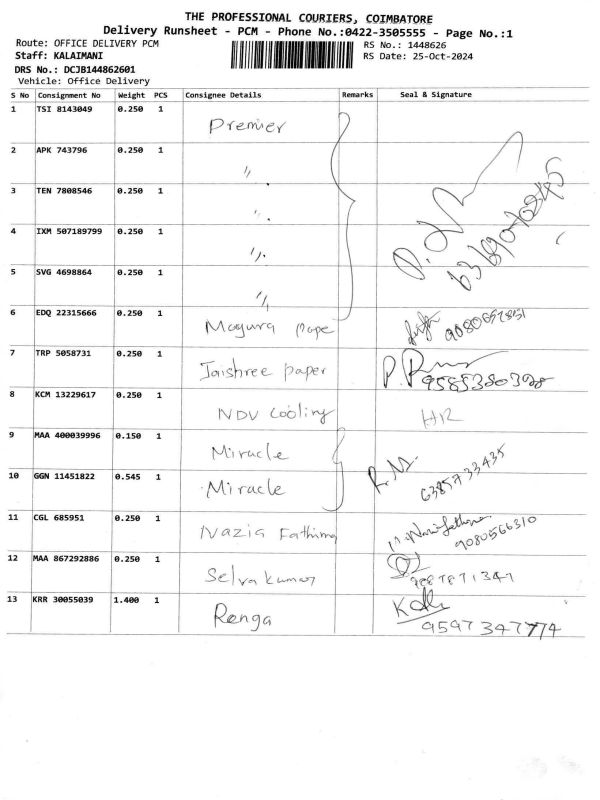 THE PROFESSIONAL COURIERS, COIMBATORE
Delivery Runsheet - PCM - Phone No.:0422-3505555 - Page No.:1
Route: OFFICE DELIVERY PCM RS No.: 1448626
Staff: KALAIMANI RS Date: 25-Oct-2024
DRS No.: DCJB144862601
Vehicle: Office Delivery
S No Consignment No Weight PCS Consignee Details Remarks Seal & Signature
1 TSI 8143049 0.250 1 Premier
2 APK 743796 0.250 1 "
3 TEN 7808546 0.250 1 "
4 IXM 507189799 0.250 1 "
5 SVG 4698864 0.250 1 "
6 EDQ 22315666 0.250 1 Mayura pape
7 TRP 5058731 0.250 1 Jaishree paper
8 KCM 13229617 0.250 1 NDV Cooling HR
9 MAA 400039996 0.150 1 Miracle
10 GGN 11451822 0.545 1 Miracle R.M. 6385733435
11 CGL 685951 0.250 1 Nazia Fathima 9080566310
12 MAA 867292886 0.250 1 Selvakumar
13 KRR 30055039 1.400 1 Renga 9597347774